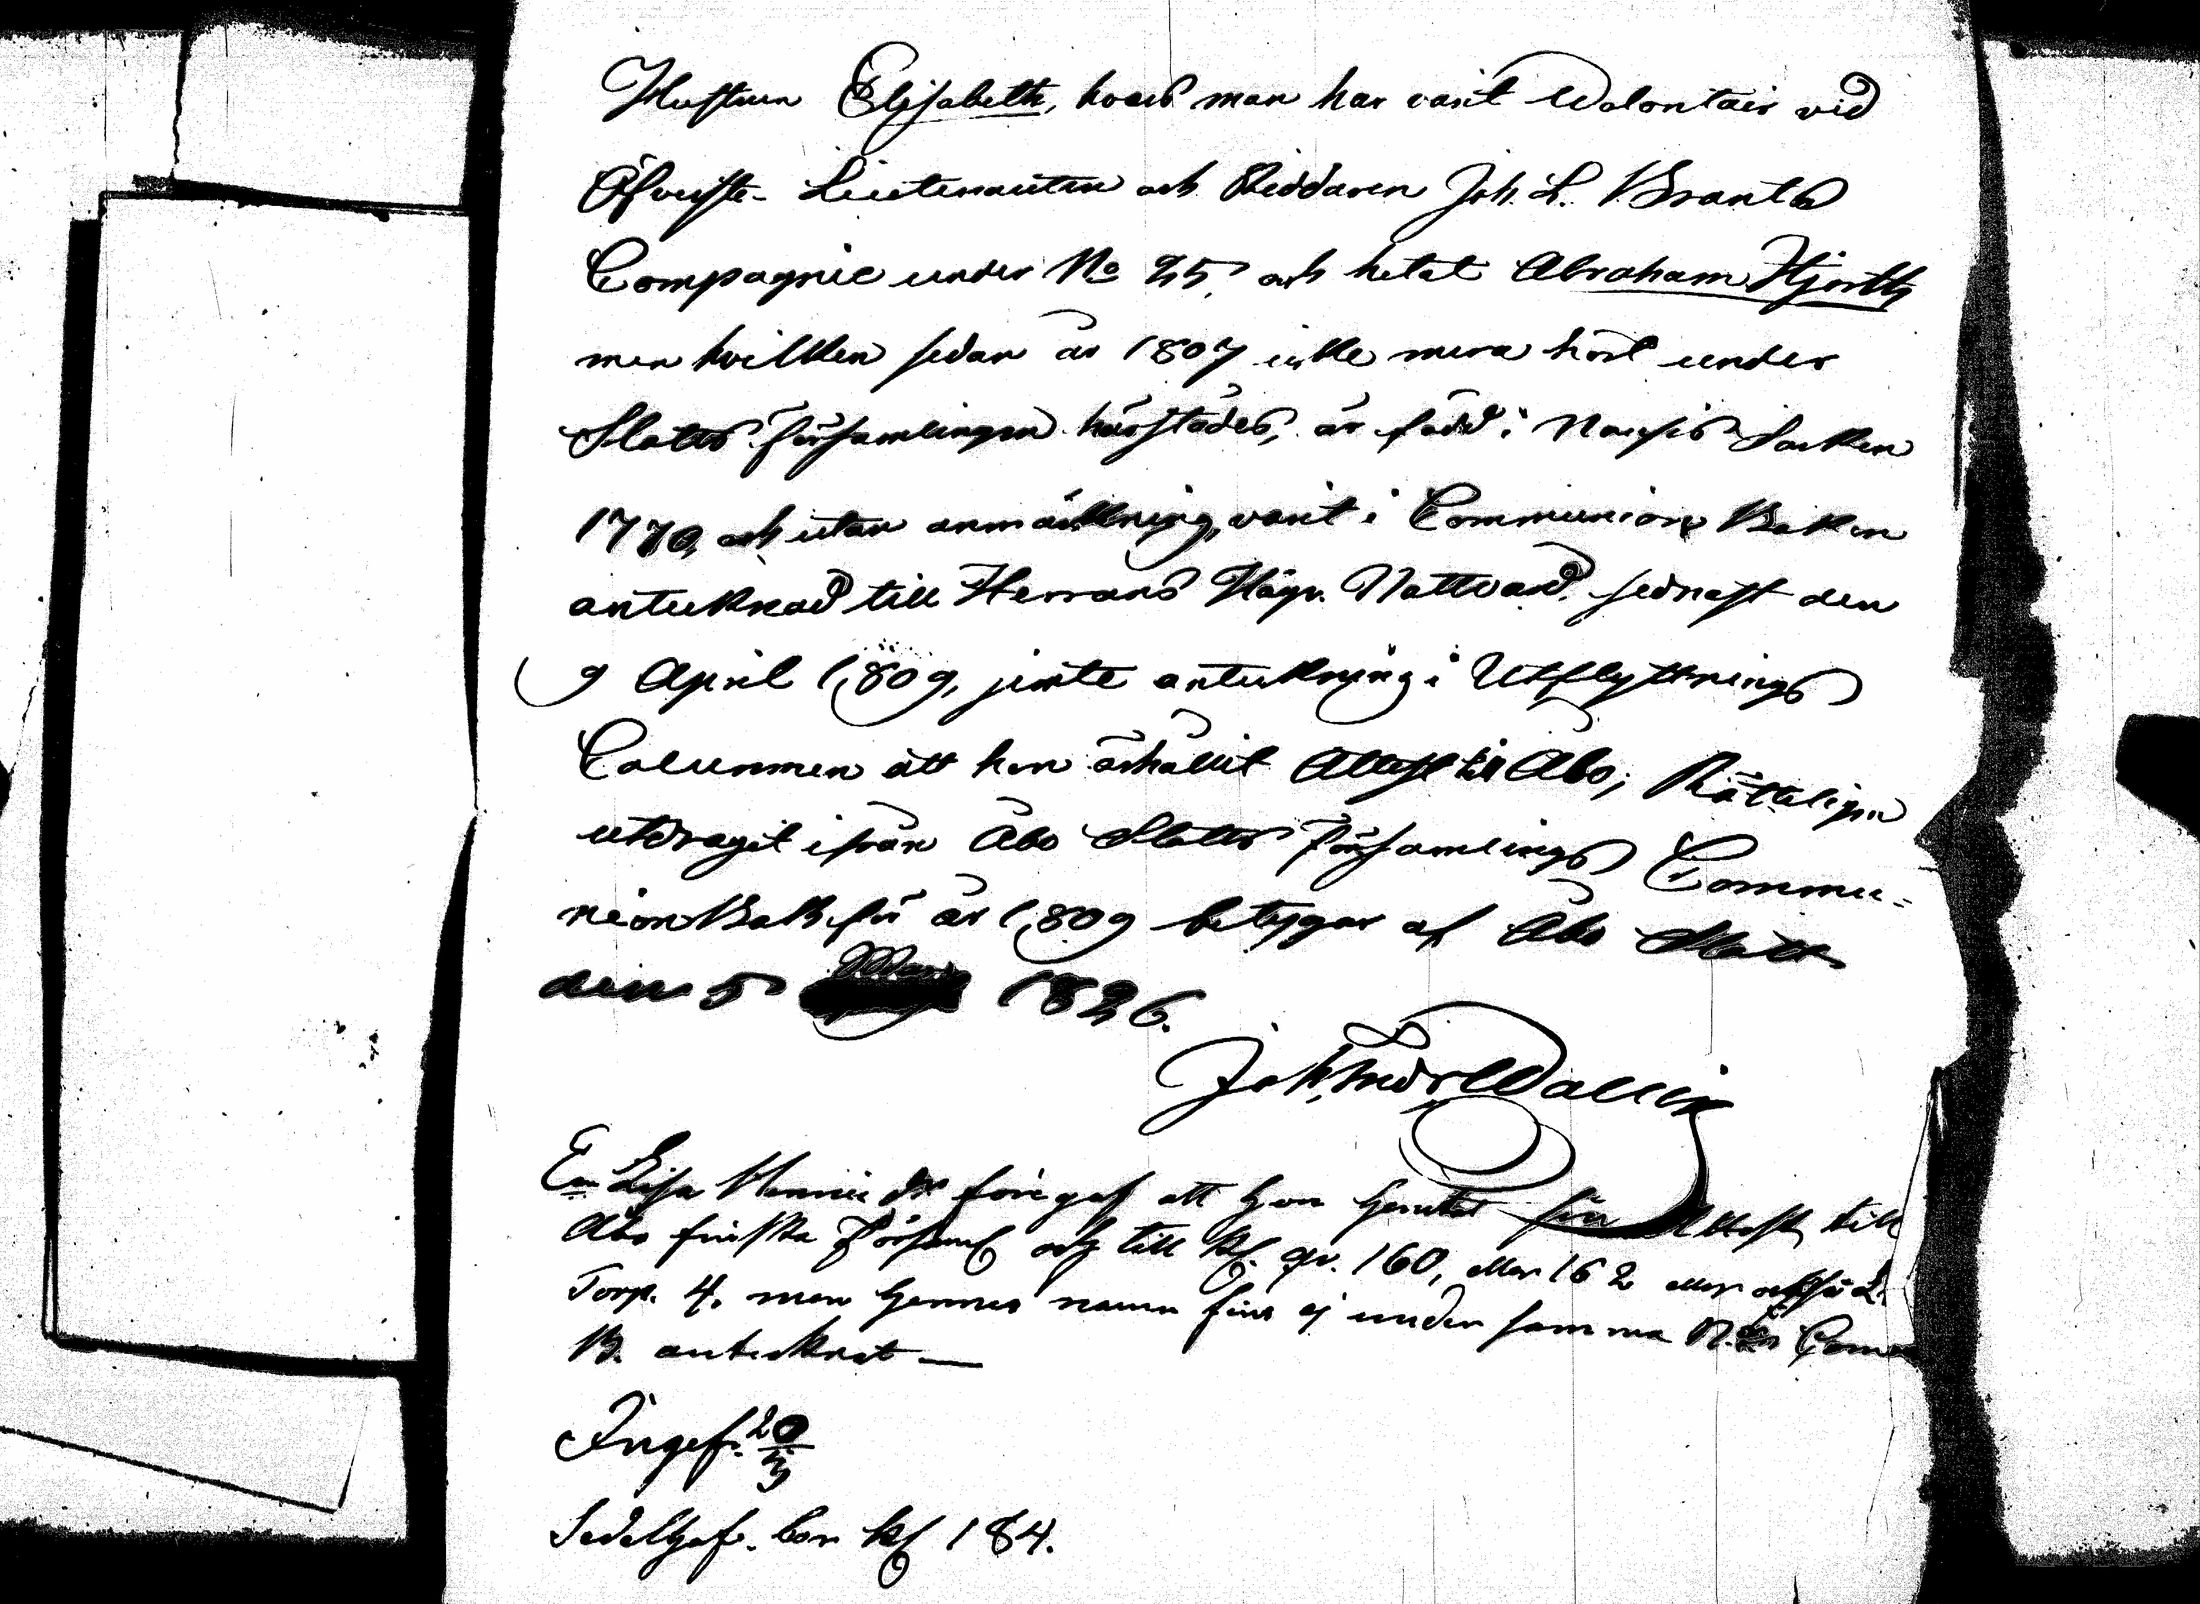 Hustrun Elisabeth, hvars man har varit Volontair vid
Öfverste-Lieutenanten och Riddaren Joh. L. Brants
Compagnie under No 25, och hetat Abraham Hjorth
men hvilken sedan år 1807 icke mera hört under
Slotts församlingen härstädes, är född i Nousis Socken
1770, och utan anmärkning, varit i Communion Boken
antecknad till Herrans Högv. Nattvard, sednast den
9 April 1809, jemte anteckning i Utflyttnings
Columnen att hon erhållit Attest till Åbo; Rätteligen
utdragit ifrån Åbo Slotts Församlings Commu=
nion Bok för år 1809 betygar af Åbo Slott
den 5 Maij 1826.
Joh. Fredr. Wallin
En Lisa Henricsdr föregaf att hon hemtat sin Attest till
Åbo finska Församl och till kl. qv. 160, eller 162 eller också
Torp. 4. men hennes namn fins ej under samma N. i Comm
B. antecknat —
Ingef. 20/3
Sedelhaf. bor kl 184.